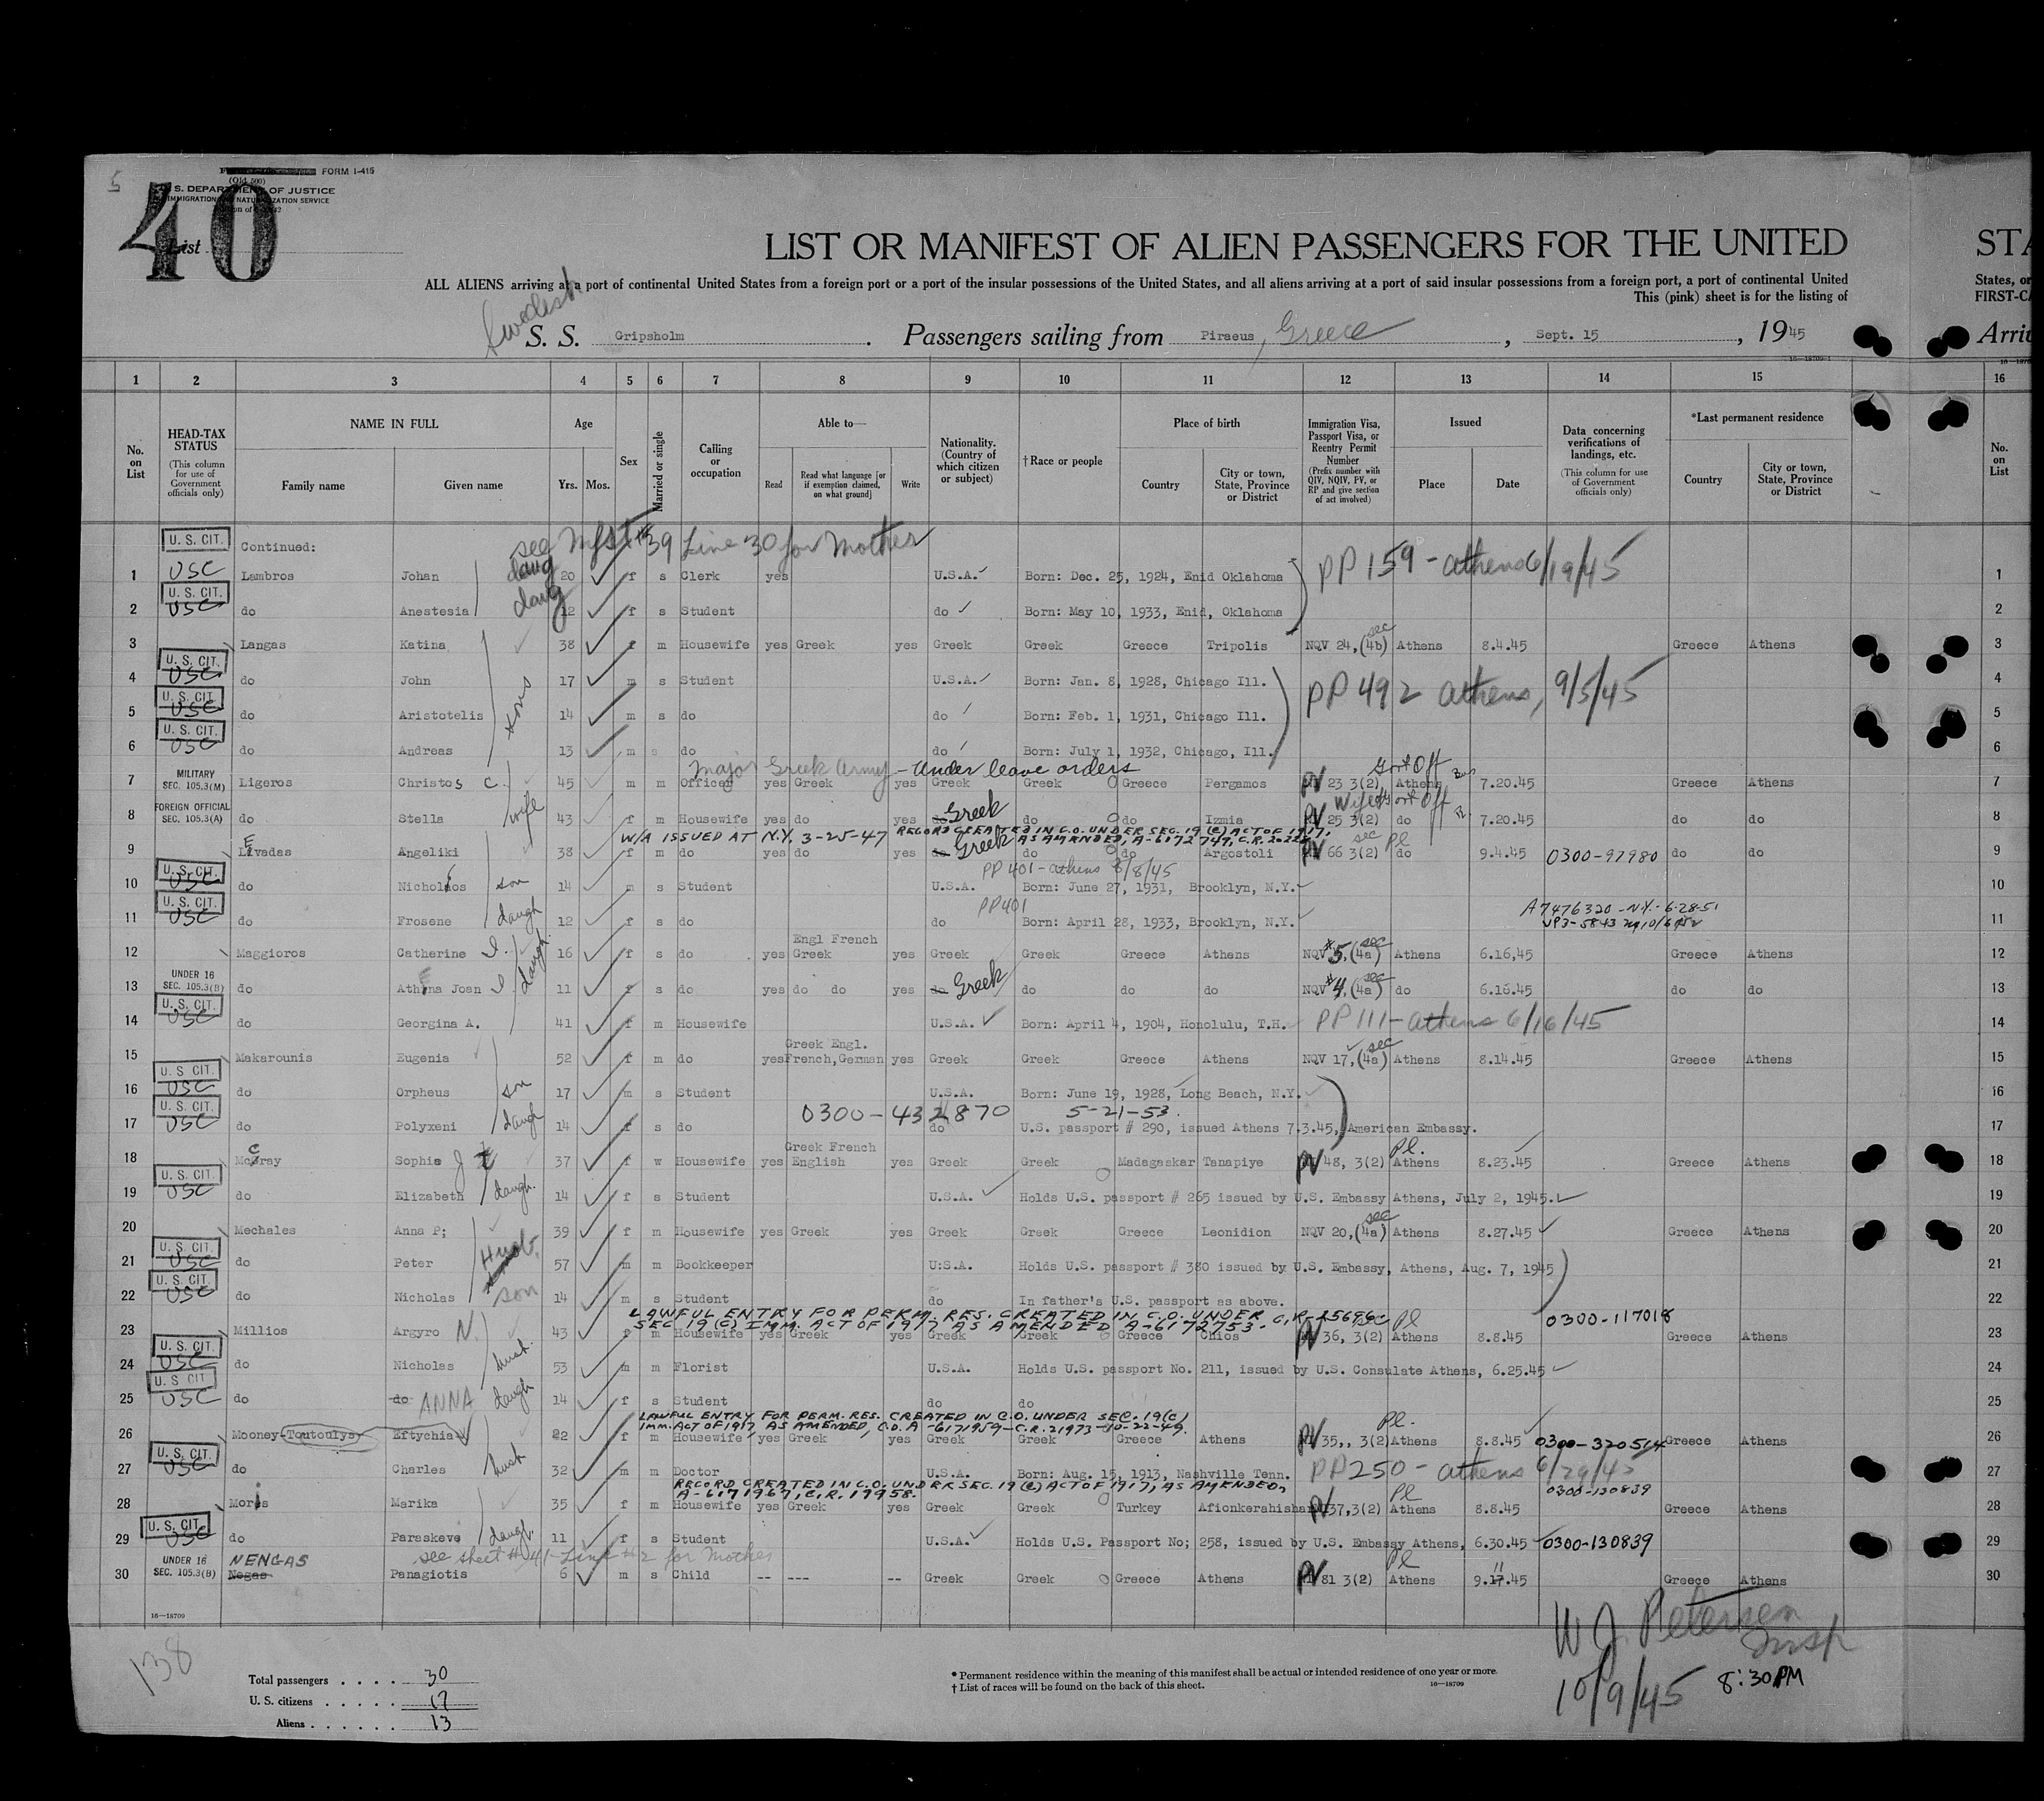 5
FORM I-415
(Old 500)
U. S. DEPARTMENT OF JUSTICE
IMMIGRATION AND NATURALIZATION SERVICE
40
List
LIST OR MANIFEST OF ALIEN PASSENGERS FOR THE UNITED STA
ALL ALIENS arriving at a port of continental United States from a foreign port or a port of the insular possessions of the United States, and all aliens arriving at a port of said insular possessions from a foreign port, a port of continental United States, or
This (pink) sheet is for the listing of FIRST-CA
Swedish
S. S. Gripsholm . Passengers sailing from Piraeus, Greece , Sept. 15 , 1945 Arriv
16—18709-1
1 2 3 4 5 6 7 8 9 10 11 12 13 14 15 16
No. on List
HEAD-TAX STATUS (This column for use of Government officials only)
NAME IN FULL Family name Given name
Age Yrs. Mos.
Sex
Married or single
Calling or occupation
Able to— Read Read what language [or if exemption claimed, on what ground] Write
Nationality. (Country of which citizen or subject)
†Race or people
Place of birth Country City or town, State, Province or District
Immigration Visa, Passport Visa, or Reentry Permit Number (Prefix number with QIV, NQIV, PV, or RP and give section of act involved)
Issued Place Date
Data concerning verifications of landings, etc. (This column for use of Government officials only)
*Last permanent residence Country City or town, State, Province or District
No. on List
U. S. CIT. Continued: see Mfst #39 Line 30 for Mother
1 USC Lambros Johan daug 20 f s Clerk yes U.S.A. Born: Dec. 25, 1924, Enid Oklahoma PP 159 - Athens 6/19/45 1
U. S. CIT.
2 USC do Anestesia daug 12 f s Student do Born: May 10, 1933, Enid, Oklahoma 2
3 Langas Katina 38 f m Housewife yes Greek yes Greek Greek Greece Tripolis NQV 24, sec (4b) Athens 8.4.45 Greece Athens 3
U. S. CIT.
4 USC do John sons 17 m s Student U.S.A. Born: Jan. 8, 1928, Chicago Ill. PP 492 Athens, 9/5/45 4
U. S. CIT.
5 USC do Aristotelis 14 m s do do Born: Feb. 1, 1931, Chicago Ill. 5
U. S. CIT.
6 USC do Andreas 13 m s do do Born: July 1, 1932, Chicago, Ill. 6
Major Greek Army - Under leave orders Govt Off
7 MILITARY SEC. 105.3(M) Ligeros Christos C. 45 m m Officer yes Greek yes Greek Greek Greece Pergamos PV 23 3(2) Athens 7.20.45 Greece Athens 7
Wife of Govt Off
8 FOREIGN OFFICIAL SEC. 105.3(A) do Stella wife 43 f m Housewife yes do yes do Greek do do Izmia PV 25 3(2) do 7.20.45 do do 8
W/A ISSUED AT N.Y. 3-25-47 RECORD CREATED IN C.O. UNDER SEC. 19 (C) ACT OF 1917, AS AMENDED, A-6172 749, C.R. 20222
9 Livadas Angeliki 38 f m do yes do yes do Greek do do Argostoli PV 66 3(2) sec Pl do 9.4.45 0300-97980 do do 9
U. S. CIT. PP 401 - Athens 8/8/45
10 USC do Nicholaos son 14 m s Student U.S.A. Born: June 27, 1931, Brooklyn, N.Y. 10
U. S. CIT. PP 401 A7476320 - N.Y. - 6-28-51
11 USC do Frosene daugh 12 f s do do Born: April 28, 1933, Brooklyn, N.Y. 11
Engl French
12 Maggioros Catherine I. 16 f s do yes Greek yes Greek Greek Greece Athens NQV #5, sec (4a) Athens 6.16,45 Greece Athens 12
13 UNDER 16 SEC. 105.3(B) do Athena Joan I. daugh. 11 f s do yes do do yes do Greek do do do NQV #4, sec (4a) do 6.16.45 do do 13
U. S. CIT.
14 USC do Georgina A. 41 f m Housewife U.S.A. Born: April 4, 1904, Honolulu, T.H. PP 111 - Athens 6/16/45 14
Greek Engl.
15 Makarounis Eugenia 52 f m do yes French,German yes Greek Greek Greece Athens NQV 17, sec (4a) Athens 8.14.45 Greece Athens 15
U. S. CIT.
16 USC do Orpheus son 17 m s Student U.S.A. Born: June 19, 1928, Long Beach, N.Y. 16
U. S. CIT. 0300-432870 5-21-53.
17 USC do Polyxeni daugh 14 f s do do U.S. passport # 290, issued Athens 7.3.45, American Embassy. 17
Greek French Pl.
18 McCray Sophie J 37 f w Housewife yes English yes Greek Greek Madagaskar Tanapiye PV 48, 3(2) Athens 8.23.45 Greece Athens 18
U. S. CIT.
19 USC do Elizabeth daugh. 14 f s Student U.S.A. Holds U.S. passport # 265 issued by U.S. Embassy Athens, July 2, 1945. 19
20 Mechales Anna P; 39 f m Housewife yes Greek yes Greek Greek Greece Leonidion NQV 20, sec (4a) Athens 8.27.45 Greece Athens 20
U. S. CIT.
21 USC do Peter Husb. 57 m m Bookkeeper U.S.A. Holds U.S. passport # 380 issued by U.S. Embassy, Athens, Aug. 7, 1945 21
U. S. CIT.
22 USC do Nicholas son 14 m s Student do In father's U.S. passport as above. 22
LAWFUL ENTRY FOR PERM. RES. CREATED IN C.O. UNDER SEC 19 (C) IMM. ACT OF 1917, AS AMENDED A-6172753. Pl 0300-117018
23 Millios Argyro N. 43 f m Housewife yes Greek yes Greek Greek Greece Chios PV 36, 3(2) Athens 8.8.45 Greece Athens 23
U. S. CIT.
24 USC do Nicholas husb. 53 m m Florist U.S.A. Holds U.S. passport No. 211, issued by U.S. Consulate Athens, 6.25.45 24
U. S. CIT.
25 USC do do ANNA daugh 14 f s Student do do 25
LAWFUL ENTRY FOR PERM. RES. CREATED IN C.O. UNDER SEC. 19(C) IMM. ACT OF 1917, AS AMENDED, C.O. A-6171959 - C.R. 21973 - 10-22-49. Pl.
26 Mooney-Toutoulys Eftychia 22 f m Housewife yes Greek yes Greek Greek Greece Athens PV 35,, 3(2) Athens 8.8.45 0300-320514 Greece Athens 26
U. S. CIT.
27 USC do Charles husb 32 m m Doctor U.S.A. Born: Aug. 15, 1913, Nashville Tenn. PP 250 - Athens 6/29/45 27
RECORD CREATED IN C.O. UNDER SEC. 19 (C) ACT OF 1917, AS AMENDED, A-6171967, C.R. 19958. Pl 0300-130839
28 Moris Marika 35 f m Housewife yes Greek yes Greek Greek Turkey PV 37,3(2) Athens 8.8.45 Greece Athens 28
U. S. CIT.
29 USC do Paraskeve daugh. 11 f s Student U.S.A. Holds U.S. Passport No; 258, issued by U.S. Embassy Athens, 6.30.45 0300-130839 29
NENGAS see sheet # 41 - Line #2 for Mother Pl
30 UNDER 16 SEC. 105.3(B) Negas Panagiotis 6 m s Child -- --- -- Greek Greek Greece Athens PV 81 3(2) Athens 9.17.45 11 Greece Athens 30
16—18709
138
Total passengers . . . . 30
U. S. citizens . . . . . 17
Aliens . . . . . . 13
* Permanent residence within the meaning of this manifest shall be actual or intended residence of one year or more.
† List of races will be found on the back of this sheet. 16—18709
W J Petersen Insp
10/9/45 8:30 PM